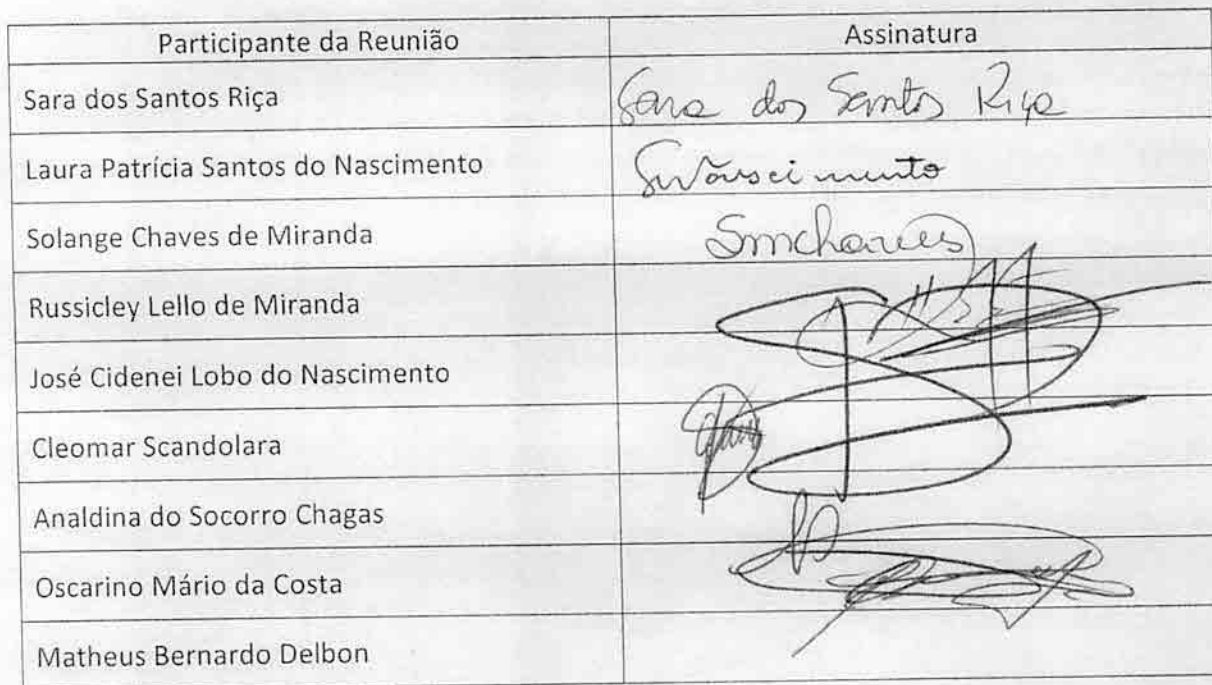 Participante da Reunião Assinatura
Sara dos Santos Riça Sara dos Santos Riça
Laura Patrícia Santos do Nascimento
Solange Chaves de Miranda Smchaves
Russicley Lello de Miranda
José Cidenei Lobo do Nascimento
Cleomar Scandolara
Analdina do Socorro Chagas
Oscarino Mário da Costa
Matheus Bernardo Delbon